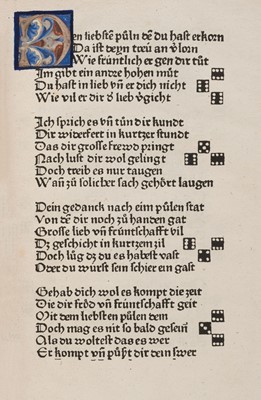 en liebstē pūln dē du hast erkorn
Da ist deyn treu an v̓lorn
Wie früntlich er gen dir tůt
Im gibt ein andre hohen můt
Du hast in lieb vn̄ er dich nicht
Wie vil er dir d̓ lieb v̓gicht
Ich sprich es vn̄ tůn dir kundt
Dir widerfert in kurtzer stundt
Das dir grosse frewd pringt
Nach lust dir wol gelingt
Doch treib es nur taugen
Wan̄ zů solicher sach gehört laugen
Dein gedanck nach eim půlen stat
Von dē dir noch zů handen gat
Grosse lieb vn̄ früntschafft vil
Dz geschicht in kurtzem zil
Doch lůg dz du es habest vast
Oder du wurst sein schier ein gast
Gehab dich wol es kompt die zeit
Die dir fröd vn̄ früntschafft geit
Mit dem liebsten půlen dem
Doch mag es nit so bald gesein
Als du woltest das es wer
Er kompt vn̄ půßt dir dein swer